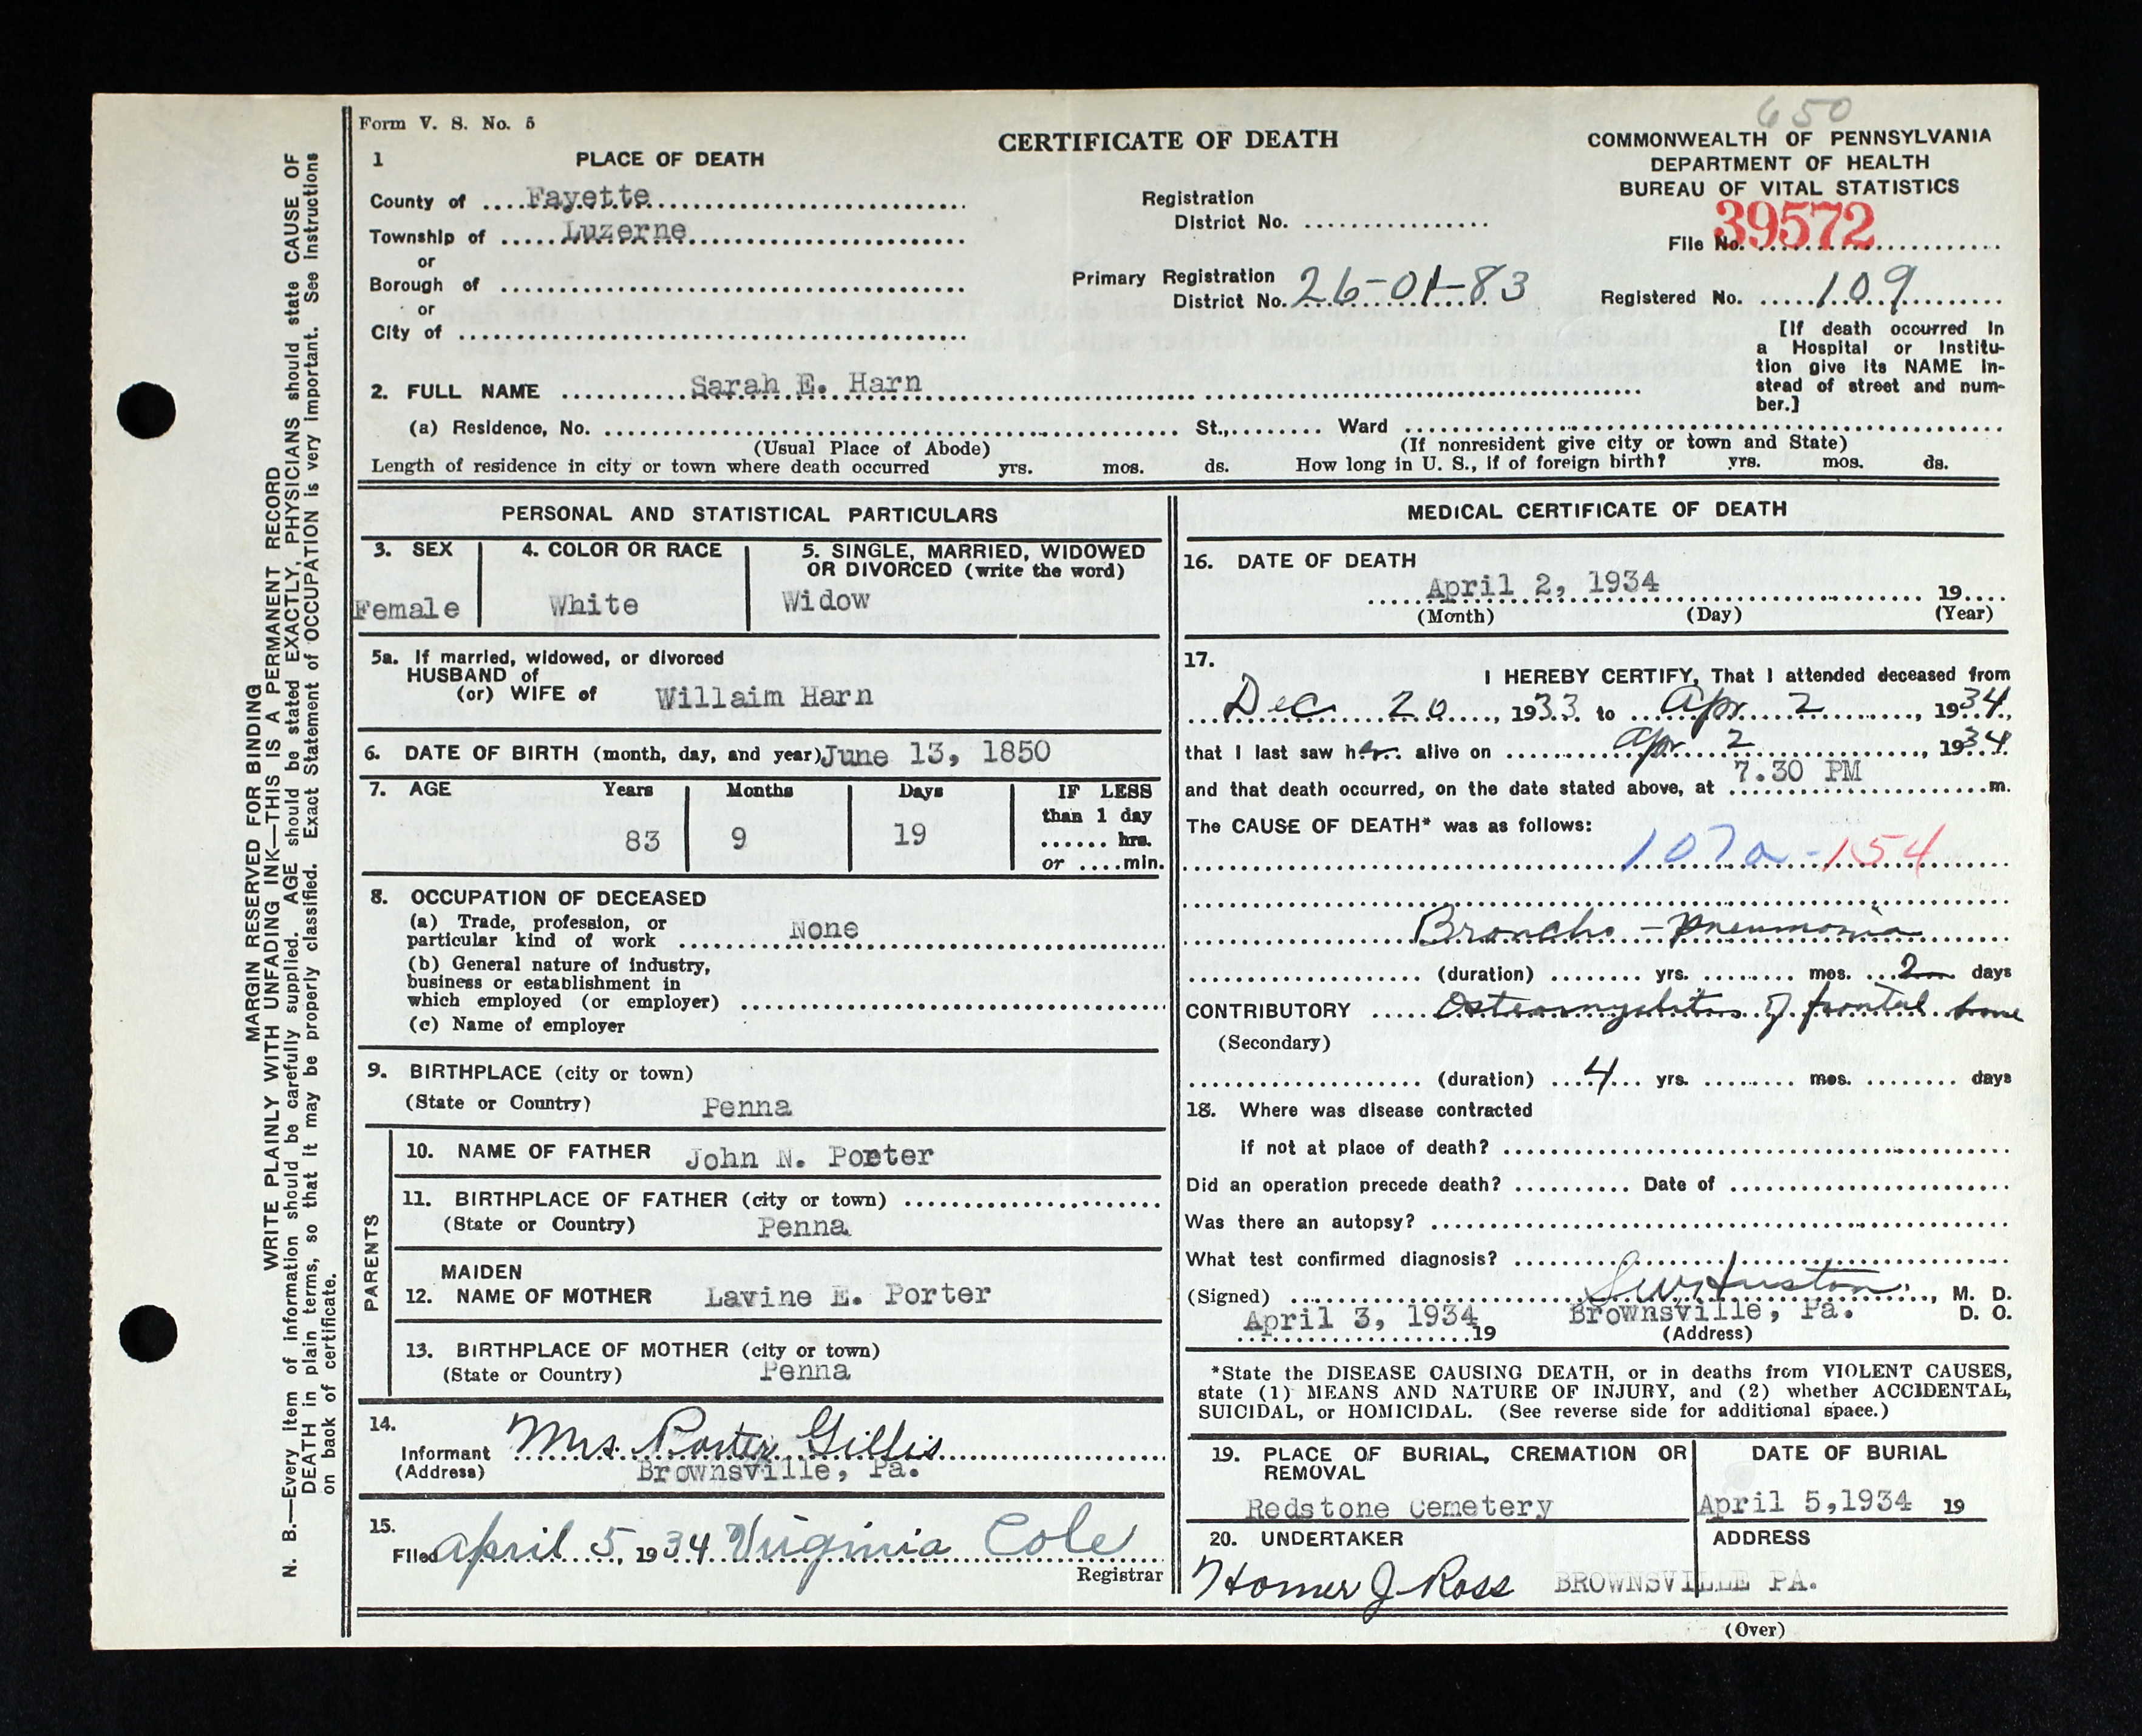 650
Form V. S. No. 5
CERTIFICATE OF DEATH
COMMONWEALTH OF PENNSYLVANIA
DEPARTMENT OF HEALTH
BUREAU OF VITAL STATISTICS
1 PLACE OF DEATH
County of Fayette
Township of Luzerne
or
Borough of
or
City of
Registration
District No.
File No. 39572
Primary Registration
District No. 26-01-83
Registered No. 109
[If death occurred in
a Hospital or Institu-
tion give its NAME in-
stead of street and num-
ber.]
2. FULL NAME Sarah E. Harn
(a) Residence, No. St., Ward
(Usual Place of Abode) (If nonresident give city or town and State)
Length of residence in city or town where death occurred yrs. mos. ds. How long in U. S., if of foreign birth? yrs. mos. ds.
PERSONAL AND STATISTICAL PARTICULARS
3. SEX 4. COLOR OR RACE 5. SINGLE, MARRIED, WIDOWED
OR DIVORCED (write the word)
Female White Widow
5a. If married, widowed, or divorced
HUSBAND of
(or) WIFE of Willaim Harn
6. DATE OF BIRTH (month, day, and year) June 13, 1850
7. AGE Years Months Days IF LESS
than 1 day
hrs.
or min.
83 9 19
8. OCCUPATION OF DECEASED
(a) Trade, profession, or
particular kind of work None
(b) General nature of industry,
business or establishment in
which employed (or employer)
(c) Name of employer
9. BIRTHPLACE (city or town)
(State or Country) Penna
PARENTS
10. NAME OF FATHER John N. Porter
11. BIRTHPLACE OF FATHER (city or town)
(State or Country) Penna
MAIDEN
12. NAME OF MOTHER Lavine E. Porter
13. BIRTHPLACE OF MOTHER (city or town)
(State or Country) Penna
14.
Informant Mrs. Porter Gillis
(Address) Brownsville, Pa.
15.
Filed April 5, 1934 Virginia Cole
Registrar
MEDICAL CERTIFICATE OF DEATH
16. DATE OF DEATH
April 2, 1934 19
(Month) (Day) (Year)
17.
I HEREBY CERTIFY, That I attended deceased from
Dec 20, 1933 to Apr 2, 1934,
that I last saw her alive on Apr 2, 1934
and that death occurred, on the date stated above, at 7.30 PM m.
The CAUSE OF DEATH* was as follows:
107a-154
Broncho-pneumonia
(duration) yrs. mos. 2 days
CONTRIBUTORY Osteomyelitis of frontal bone
(Secondary)
(duration) 4 yrs. mos. days
18. Where was disease contracted
if not at place of death?
Did an operation precede death? Date of
Was there an autopsy?
What test confirmed diagnosis?
(Signed) Huston, M. D.
April 3, 1934 19 Brownsville, Pa. D. O.
(Address)
*State the DISEASE CAUSING DEATH, or in deaths from VIOLENT CAUSES,
state (1) MEANS AND NATURE OF INJURY, and (2) whether ACCIDENTAL,
SUICIDAL, or HOMICIDAL. (See reverse side for additional space.)
19. PLACE OF BURIAL, CREMATION OR
REMOVAL
Redstone Cemetery
DATE OF BURIAL
April 5,1934 19
20. UNDERTAKER ADDRESS
Homer J Ross BROWNSVILLE PA.
(Over)
MARGIN RESERVED FOR BINDING
WRITE PLAINLY WITH UNFADING INK—THIS IS A PERMANENT RECORD
N. B.—Every item of information should be carefully supplied. AGE should be stated EXACTLY, PHYSICIANS should state CAUSE OF
DEATH in plain terms, so that it may be properly classified. Exact Statement of OCCUPATION is very important. See instructions
on back of certificate.